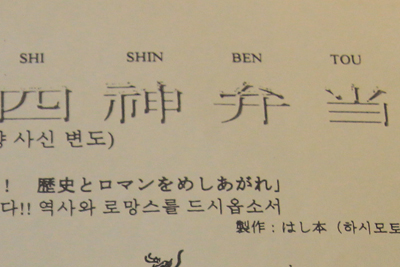 SHI SHIN BEN TOU
四神弁当
사신 변도)
! 歴史とロマンをめしあがれ」
다!! 역사와 로망스를 드시옵소서
製作：はし本（하시모토